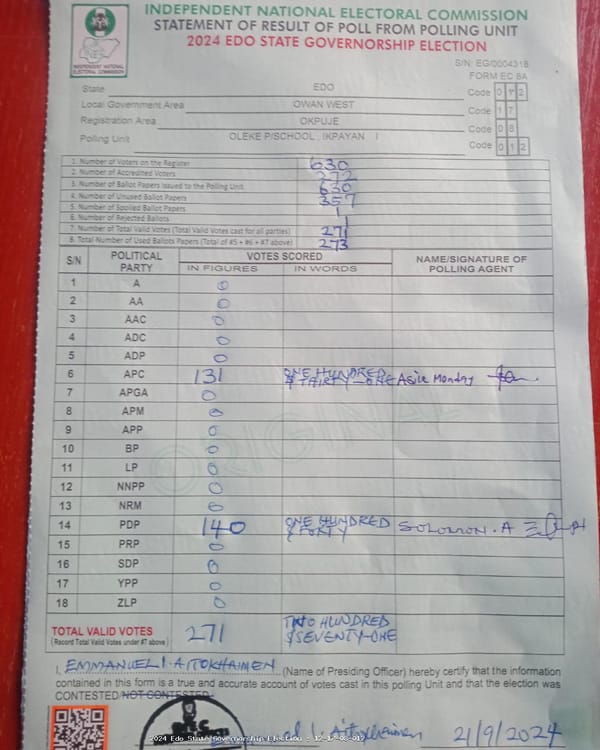 INDEPENDENT NATIONAL ELECTORAL COMMISSION
STATEMENT OF RESULT OF POLL FROM POLLING UNIT
2024 EDO STATE GOVERNORSHIP ELECTION
INDEPENDENT NATIONAL ELECTORAL COMMISSION
S/N: EG/0004318
FORM EC 8A
State EDO Code 012
Local Government Area OWAN WEST Code 17
Registration Area OKPUJE Code 08
Polling Unit OLEKE P/SCHOOL, IKPAYAN I Code 012
1. Number of Voters on the Register 630
2. Number of Accredited Voters 272
3. Number of Ballot Papers Issued to the Polling Unit 630
4. Number of Unused Ballot Papers 357
5. Number of Spoiled Ballot Papers 1
6. Number of Rejected Ballots 1
7. Number of Total Valid Votes (Total Valid Votes cast for all parties) 271
8. Total Number of Used Ballots Papers (Total of #5 + #6 + #7 above) 273
S/N POLITICAL PARTY VOTES SCORED NAME/SIGNATURE OF POLLING AGENT
IN FIGURES IN WORDS
1 A 0
2 AA 0
3 AAC 0
4 ADC 0
5 ADP 0
6 APC 131 ONE HUNDRED & THIRTY-ONE Asie Monday
7 APGA 0
8 APM 0
9 APP 0
10 BP 0
11 LP 0
12 NNPP 0
13 NRM 0
14 PDP 140 ONE HUNDRED & FORTY SOLOMON. A
15 PRP 0
16 SDP 0
17 YPP 0
18 ZLP 0
ORIGINAL
TOTAL VALID VOTES 271 TWO HUNDRED & SEVENTY-ONE
(Record Total Valid Votes under #7 above)
I, EMMANUEL I. AITOKHAIMEN (Name of Presiding Officer) hereby certify that the information
contained in this form is a true and accurate account of votes cast in this polling Unit and that the election was
CONTESTED/NOT CONTESTED.
21/9/2024
2024 Edo State Governorship Election - 12-17-08-012